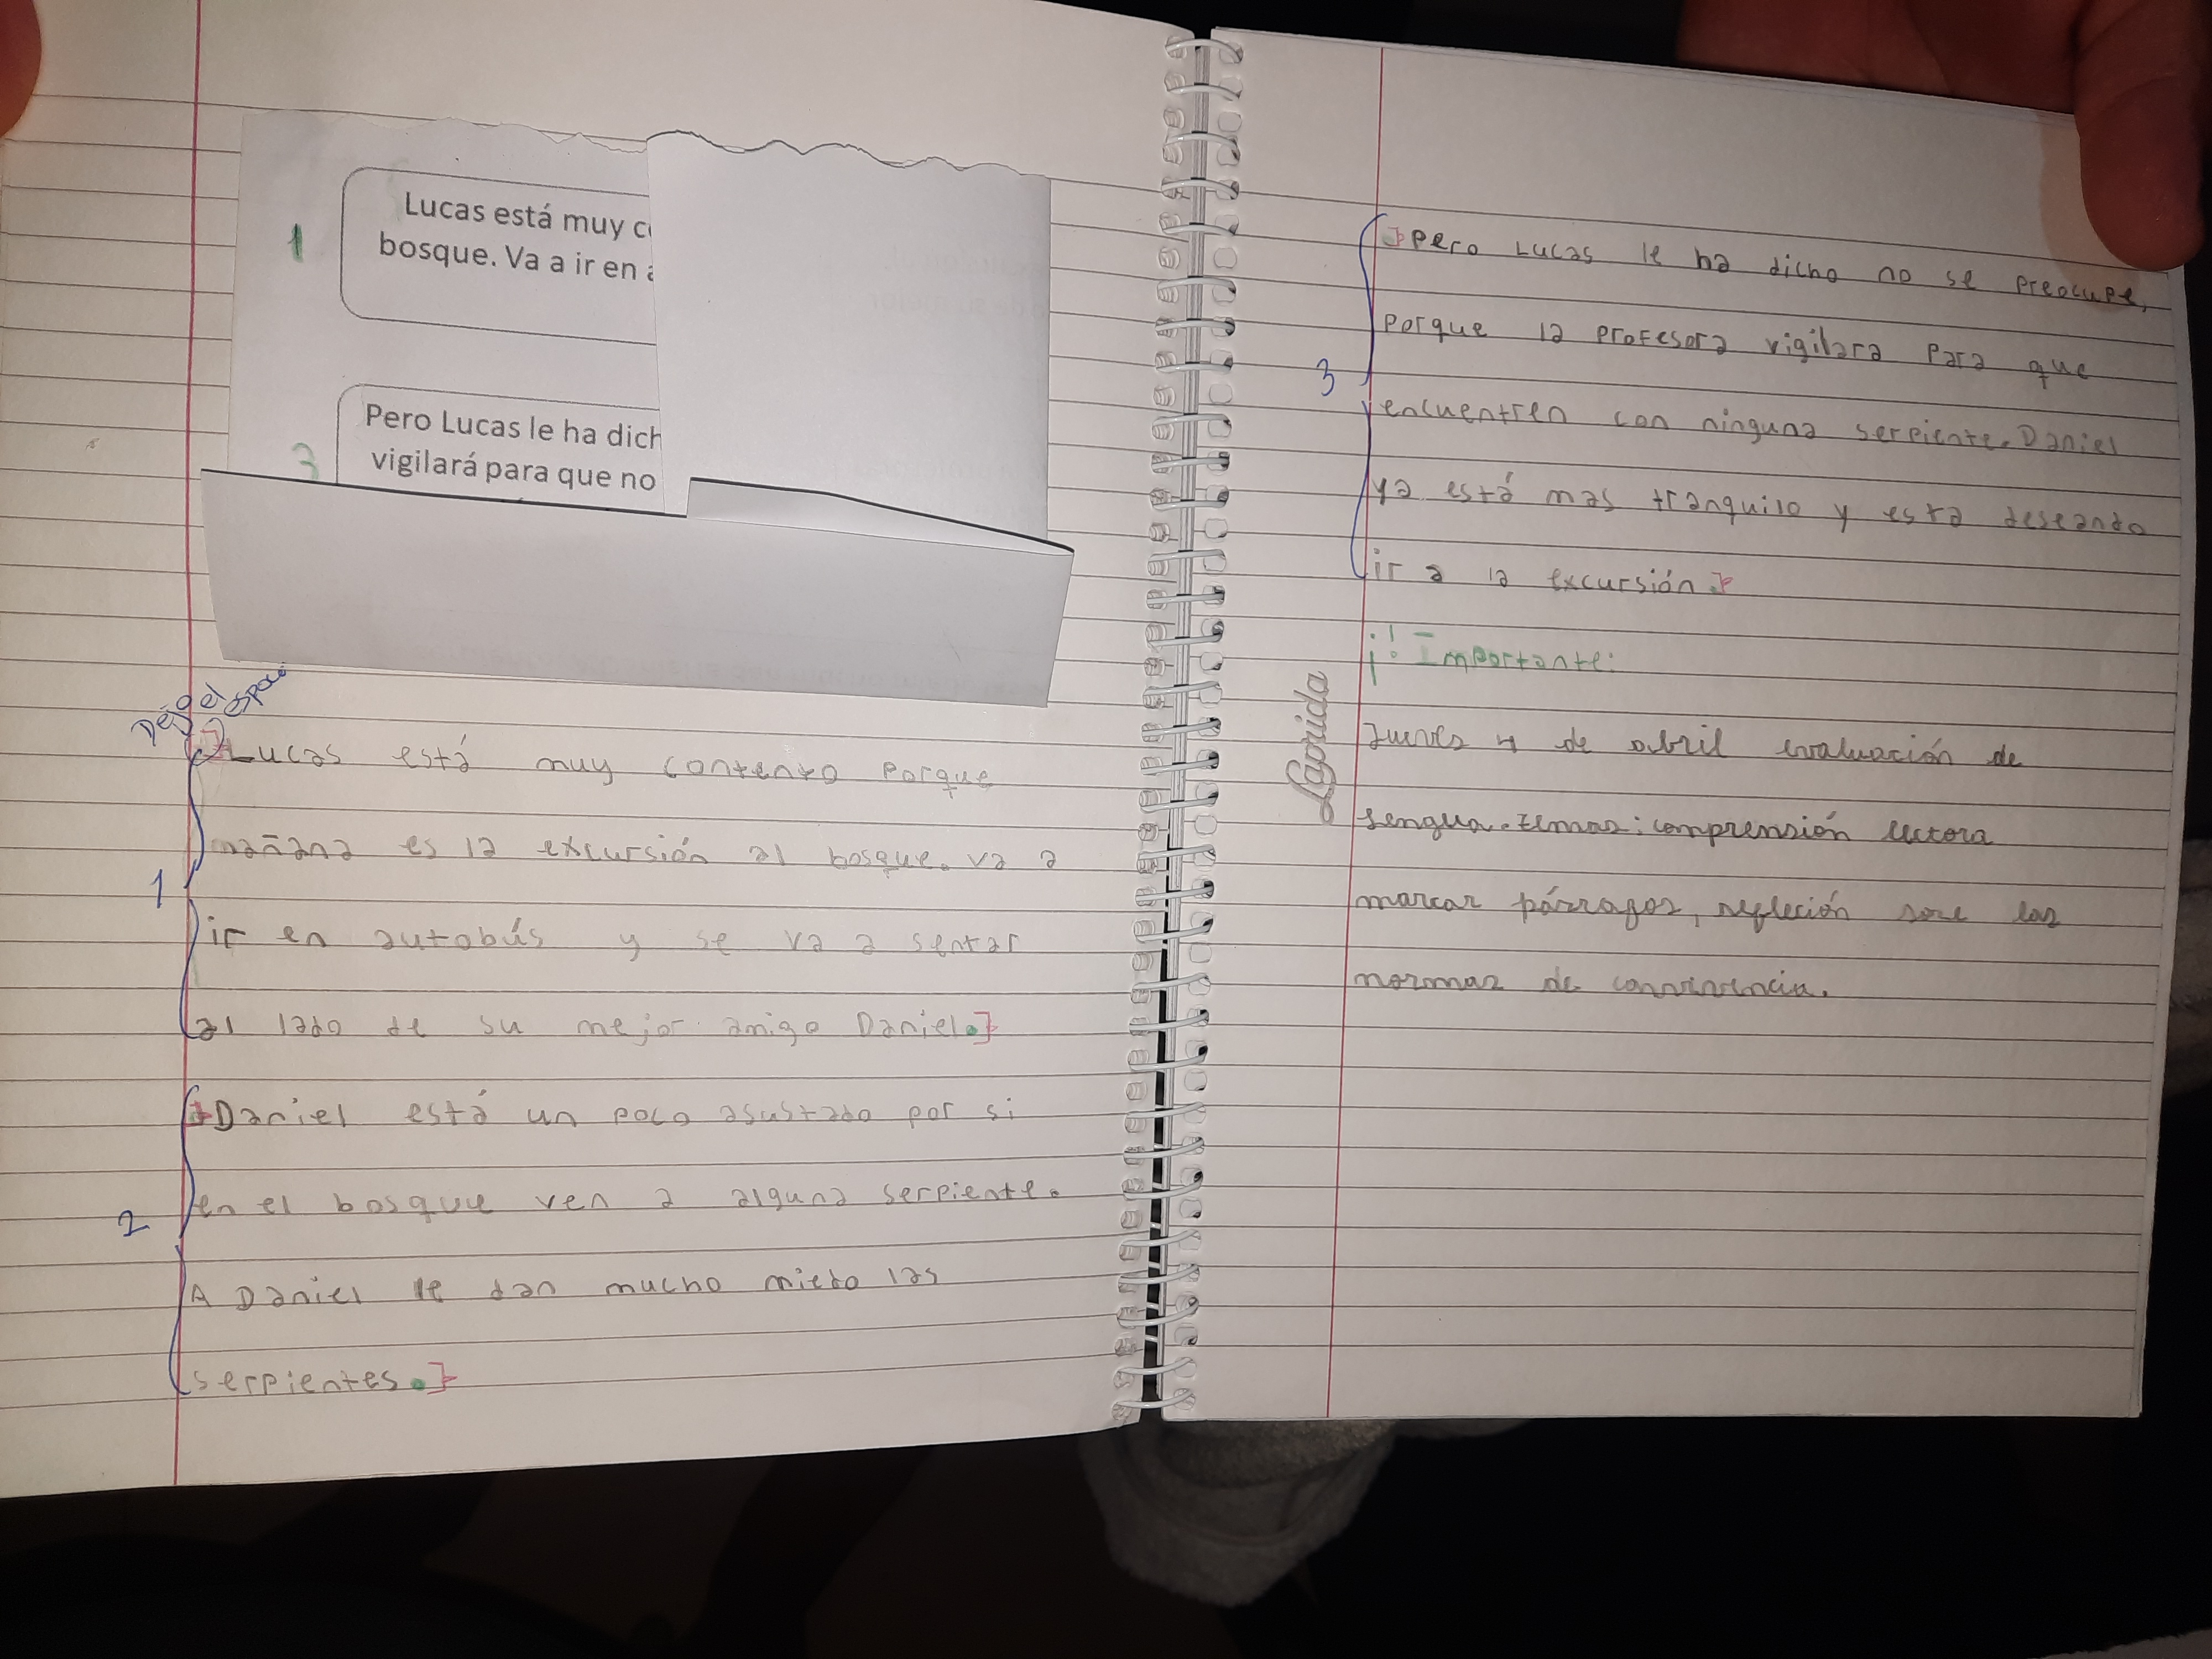 1
Lucas está muy c
bosque. Va a ir en a
3
Pero Lucas le ha dich
vigilará para que no
Dejo el
espacio
Lucas está muy contento porque
mañana es la excursión al bosque. va a
1
ir en autobús y se va a sentar
al lado de su mejor amigo Daniel.
Daniel está un poco asustado por si
en el bosque ven a alguna serpiente.
2
A Daniel le dan mucho miedo las
serpientes.
Pero Lucas le ha dicho no se preocupe,
porque la profesora vigilara para que
3
encuentren con ninguna serpiente. Daniel
ya está mas tranquilo y esta deseando
ir a la excursión.
¡! Importante:
Jueves 4 de abril evaluación de
Lengua. temas: comprensión lectora
marcar párrafos, refleción sore las
normas de convivencia.
Laprida